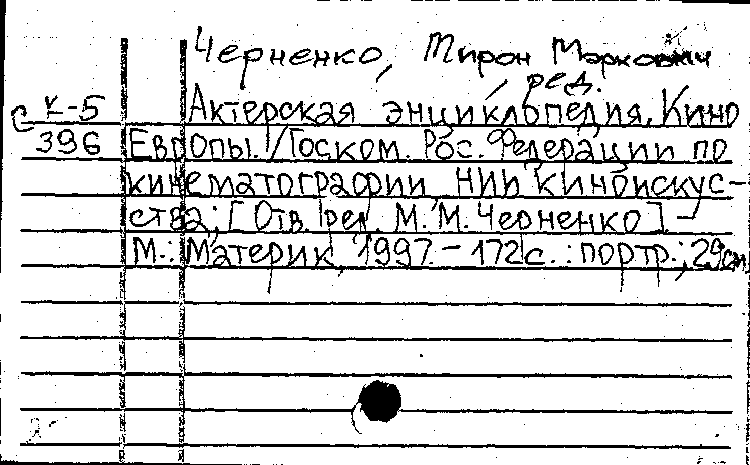 Черненко, Мирон Маркович
, ред.
К-5 Актерская энциклопедия. Кино
С 396 Европы. / Госком. Рос. Федерации по
кинематографии, НИИ киноискус-
ства; [Отв. ред. М. М. Черненко] -
М.: Материк, 1997. - 172 с. : портр.; 29 см